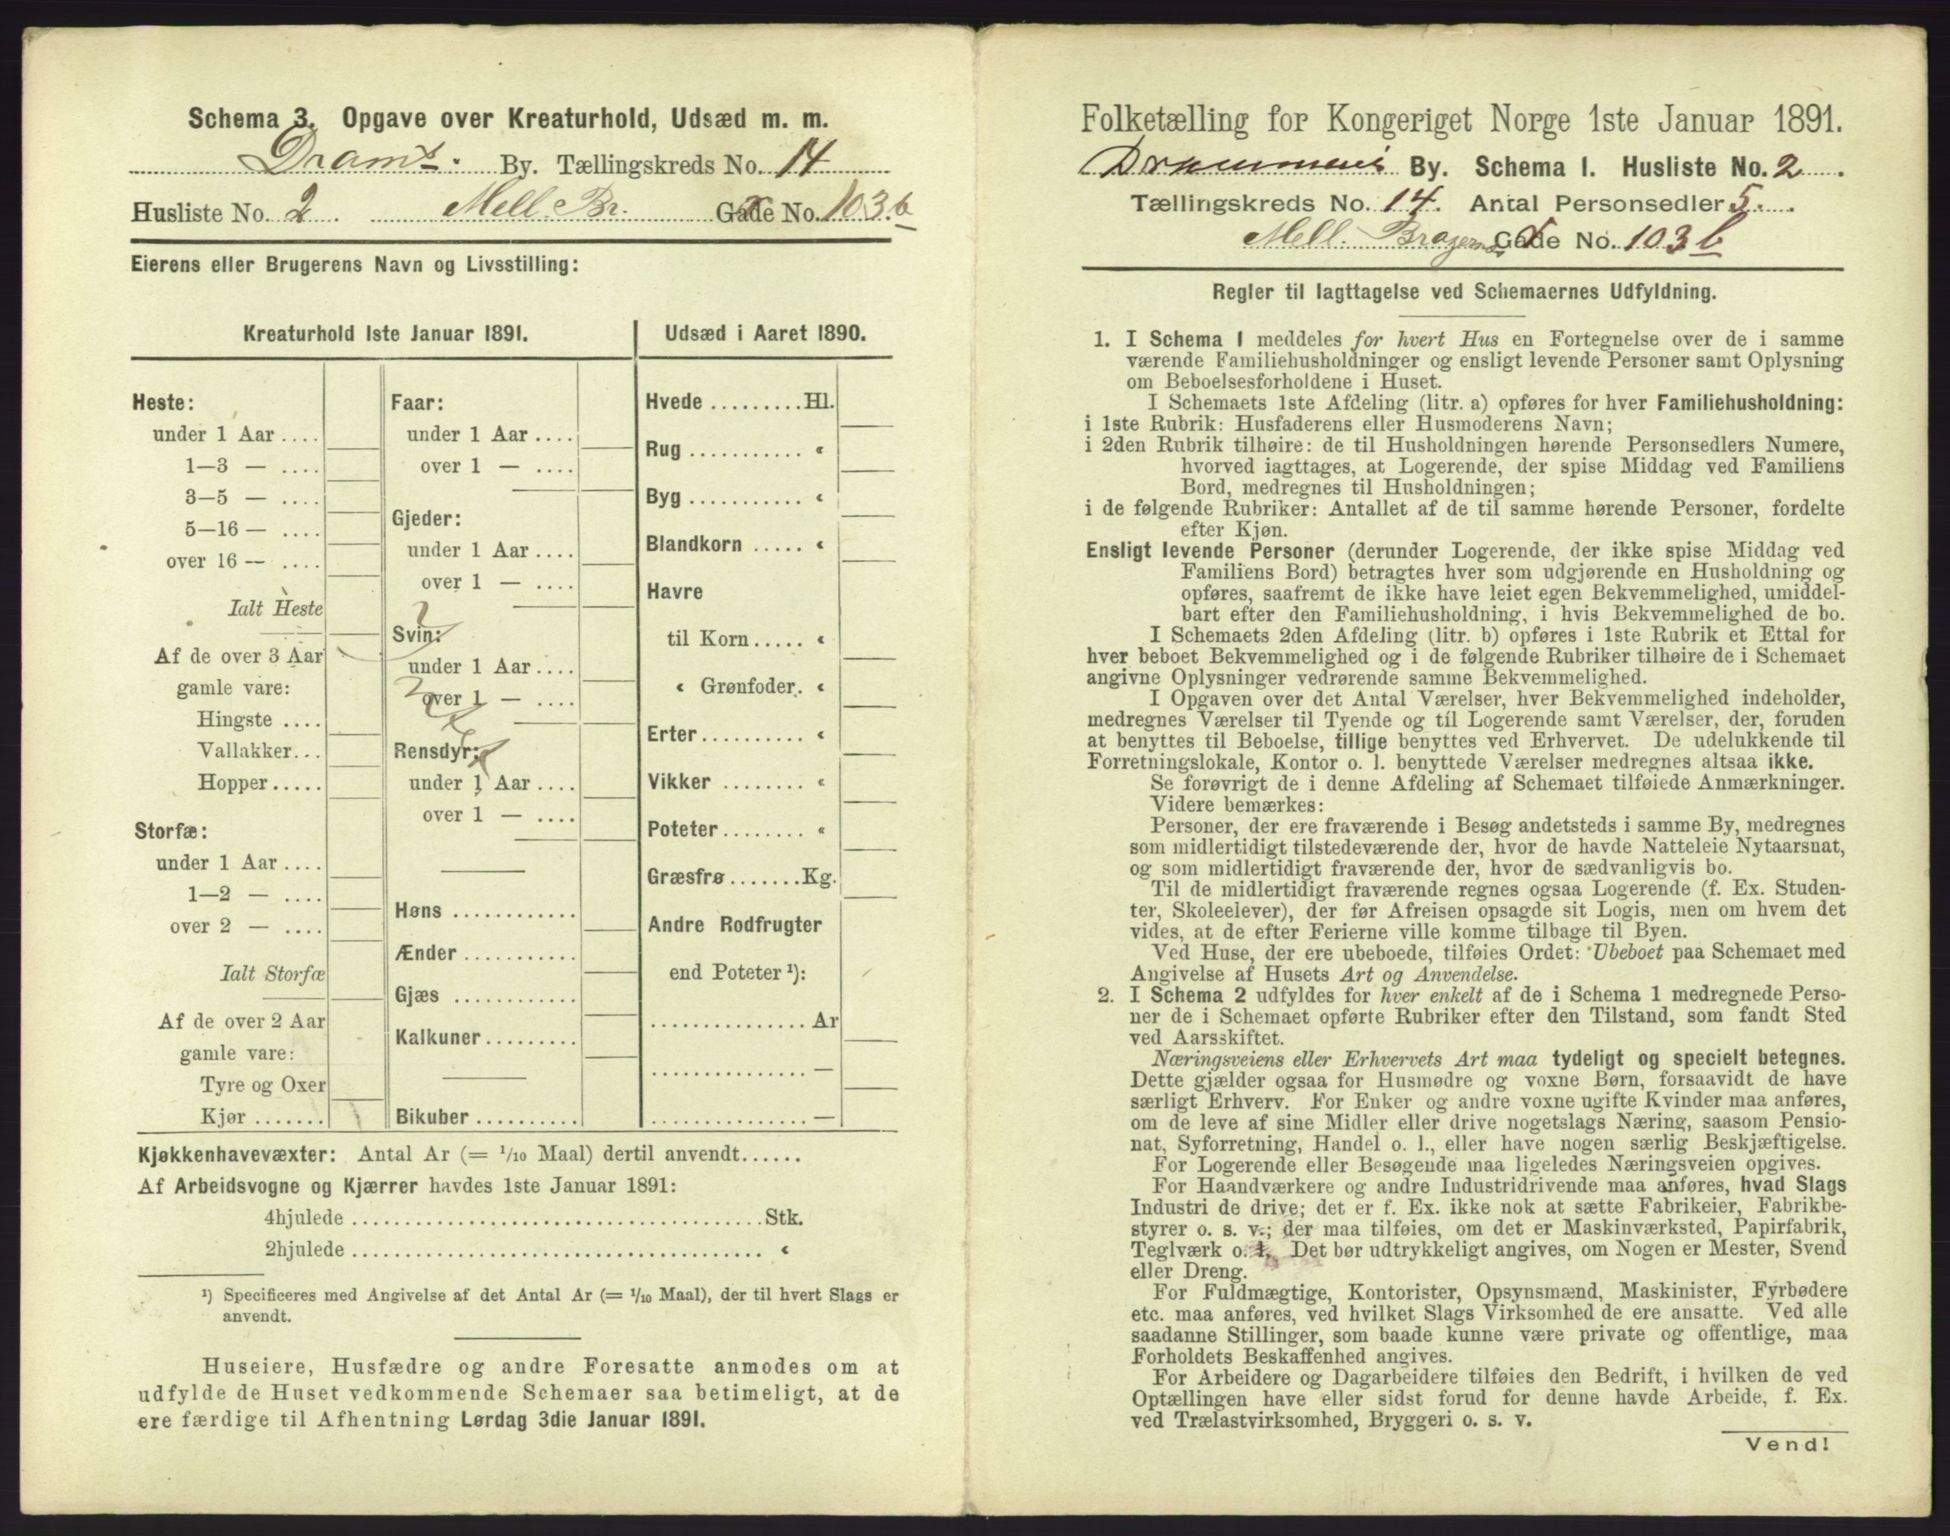 Schema 3. Opgave over Kreaturhold, Udsæd m. m.
Drams. By. Tællingskreds No. 14
Husliste No. 2 Mell. Br. Gade No. 103 b
Eierens eller Brugerens Navn og Livsstilling:
Kreaturhold 1ste Januar 1891.
Heste:
under 1 Aar ....
1—3 — ....
3—5 — ....
5—16 — ....
over 16 — ....
Ialt Heste
Af de over 3 Aar
gamle vare:
Hingste ....
Vallakker...
Hopper.....
Storfæ:
under 1 Aar ....
1—2 — ....
over 2 — ....
Ialt Storfæ
Af de over 2 Aar
gamle vare:
Tyre og Oxer
Kjør .......
Faar:
under 1 Aar ....
over 1 — ....
Gjeder:
under 1 Aar ....
over 1 — ....
Svin:
under 1 Aar ....
over 1 — ....
Rensdyr:
under 1 Aar ....
over 1 — ....
Høns ............
Ænder ...........
Gjæs ............
Kalkuner .........
Bikuber ..........
Udsæd i Aaret 1890.
Hvede .........Hl.
Rug ........... «
Byg ........... «
Blandkorn ..... «
Havre
til Korn..... «
« Grønfoder. «
Erter.......... «
Vikker ........ «
Poteter........ «
Græsfrø .......Kg.
Andre Rodfrugter
end Poteter ¹):
............... Ar
............... —
............... —
Kjøkkenhavevæxter: Antal Ar (= 1/10 Maal) dertil anvendt......
Af Arbeidsvogne og Kjærrer havdes 1ste Januar 1891:
4hjulede ....................................... Stk.
2hjulede ....................................... «
¹) Specificeres med Angivelse af det Antal Ar (= 1/10 Maal), der til hvert Slags er
anvendt.
Huseiere, Husfædre og andre Foresatte anmodes om at
udfylde de Huset vedkommende Schemaer saa betimeligt, at de
ere færdige til Afhentning Lørdag 3die Januar 1891.
Folketælling for Kongeriget Norge 1ste Januar 1891.
Drammens By. Schema I. Husliste No. 2
Tællingskreds No. 14. Antal Personsedler 5.
Mell. Bragernes Gade No. 103 b
Regler til Iagttagelse ved Schemaernes Udfyldning.
1. I Schema 1 meddeles for hvert Hus en Fortegnelse over de i samme
værende Familiehusholdninger og ensligt levende Personer samt Oplysning
om Beboelsesforholdene i Huset.
I Schemaets 1ste Afdeling (litr. a) opføres for hver Familiehusholdning:
i 1ste Rubrik: Husfaderens eller Husmoderens Navn;
i 2den Rubrik tilhøire: de til Husholdningen hørende Personsedlers Numere,
hvorved iagttages, at Logerende, der spise Middag ved Familiens
Bord, medregnes til Husholdningen;
i de følgende Rubriker: Antallet af de til samme hørende Personer, fordelte
efter Kjøn.
Ensligt levende Personer (derunder Logerende, der ikke spise Middag ved
Familiens Bord) betragtes hver som udgjørende en Husholdning og
opføres, saafremt de ikke have leiet egen Bekvemmelighed, umiddel-
bart efter den Familiehusholdning, i hvis Bekvemmelighed de bo.
I Schemaets 2den Afdeling (litr. b) opføres i 1ste Rubrik et Ettal for
hver beboet Bekvemmelighed og i de følgende Rubriker tilhøire de i Schemaet
angivne Oplysninger vedrørende samme Bekvemmelighed.
I Opgaven over det Antal Værelser, hver Bekvemmelighed indeholder,
medregnes Værelser til Tyende og til Logerende samt Værelser, der, foruden
at benyttes til Beboelse, tillige benyttes ved Erhvervet. De udelukkende til
Forretningslokale, Kontor o. l. benyttede Værelser medregnes altsaa ikke.
Se forøvrigt de i denne Afdeling af Schemaet tilføiede Anmærkninger.
Videre bemærkes:
Personer, der ere fraværende i Besøg andetsteds i samme By, medregnes
som midlertidigt tilstedeværende der, hvor de havde Natteleie Nytaarsnat,
og som midlertidigt fraværende der, hvor de sædvanligvis bo.
Til de midlertidigt fraværende regnes ogsaa Logerende (f. Ex. Studen-
ter, Skoleelever), der før Afreisen opsagde sit Logis, men om hvem det
vides, at de efter Ferierne ville komme tilbage til Byen.
Ved Huse, der ere ubeboede, tilføies Ordet: Ubeboet paa Schemaet med
Angivelse af Husets Art og Anvendelse.
2. I Schema 2 udfyldes for hver enkelt af de i Schema 1 medregnede Perso-
ner de i Schemaet opførte Rubriker efter den Tilstand, som fandt Sted
ved Aarsskiftet.
Næringsveiens eller Erhvervets Art maa tydeligt og specielt betegnes.
Dette gjælder ogsaa for Husmødre og voxne Børn, forsaavidt de have
særligt Erhverv. For Enker og andre voxne ugifte Kvinder maa anføres,
om de leve af sine Midler eller drive nogetslags Næring, saasom Pensio-
nat, Syforretning, Handel o. l., eller have nogen særlig Beskjæftigelse.
For Logerende eller Besøgende maa ligeledes Næringsveien opgives.
For Haandværkere og andre Industridrivende maa anføres, hvad Slags
Industri de drive; det er f. Ex. ikke nok at sætte Fabrikeier, Fabrikbe-
styrer o. s. v.; der maa tilføies, om det er Maskinværksted, Papirfabrik,
Teglværk o. l. Det bør udtrykkeligt angives, om Nogen er Mester, Svend
eller Dreng.
For Fuldmægtige, Kontorister, Opsynsmænd, Maskinister, Fyrbødere
etc. maa anføres, ved hvilket Slags Virksomhed de ere ansatte. Ved alle
saadanne Stillinger, som baade kunne være private og offentlige, maa
Forholdets Beskaffenhed angives.
For Arbeidere og Dagarbeidere tilføies den Bedrift, i hvilken de ved
Optællingen have eller sidst forud for denne havde Arbeide, f. Ex.
ved Trælastvirksomhed, Bryggeri o. s. v.
Vend!